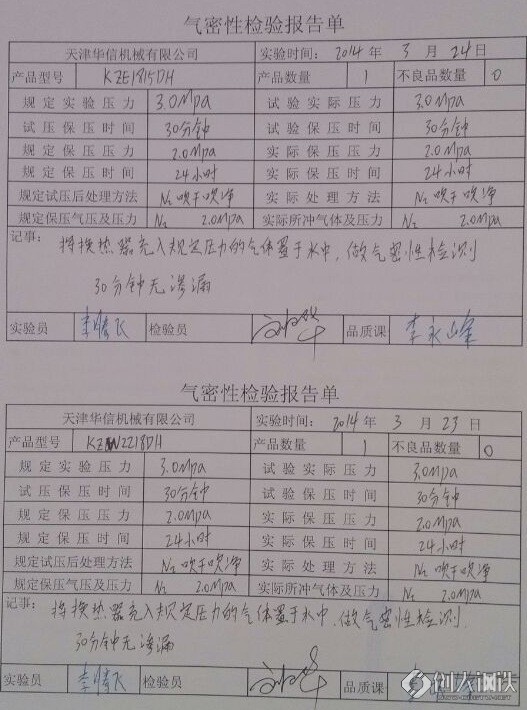 气密性检验报告单
天津华信机械有限公司 实验时间: 2014 年 3 月 24 日
产品型号 KZE1815DH 产品数量 1 不良品数量 0
规定实验压力 3.0Mpa 试验实际压力 3.0Mpa
试压保压时间 30分钟 试验保压时间 30分钟
规定保压压力 2.0Mpa 实际保压压力 2.0Mpa
规定保压时间 24小时 实际保压时间 24小时
规定试压后处理方法 N₂吹干吹净 实际处理方法 N₂吹干吹净
规定保压气压及压力 N₂ 2.0Mpa 实际所冲气体及压力 N₂ 2.0Mpa
记事: 将换热器充入规定压力的气体置于水中,做气密性检测
30分钟无渗漏
实验员 李腾飞 检验员 品质课 李永峰
气密性检验报告单
天津华信机械有限公司 实验时间: 2014 年 3 月 23 日
产品型号 产品数量 1 不良品数量 0
规定实验压力 3.0Mpa 试验实际压力 3.0Mpa
试压保压时间 30分钟 试验保压时间 30分钟
规定保压压力 2.0Mpa 实际保压压力 2.0Mpa
规定保压时间 24小时 实际保压时间 24小时
规定试压后处理方法 N₂吹干吹净 实际处理方法 N₂吹干吹净
规定保压气压及压力 N₂ 2.0Mpa 实际所冲气体及压力 N₂ 2.0Mpa
记事: 将换热器充入规定压力的气体置于水中,做气密性检测.
30分钟无渗漏
实验员 李腾飞 检验员 品质课